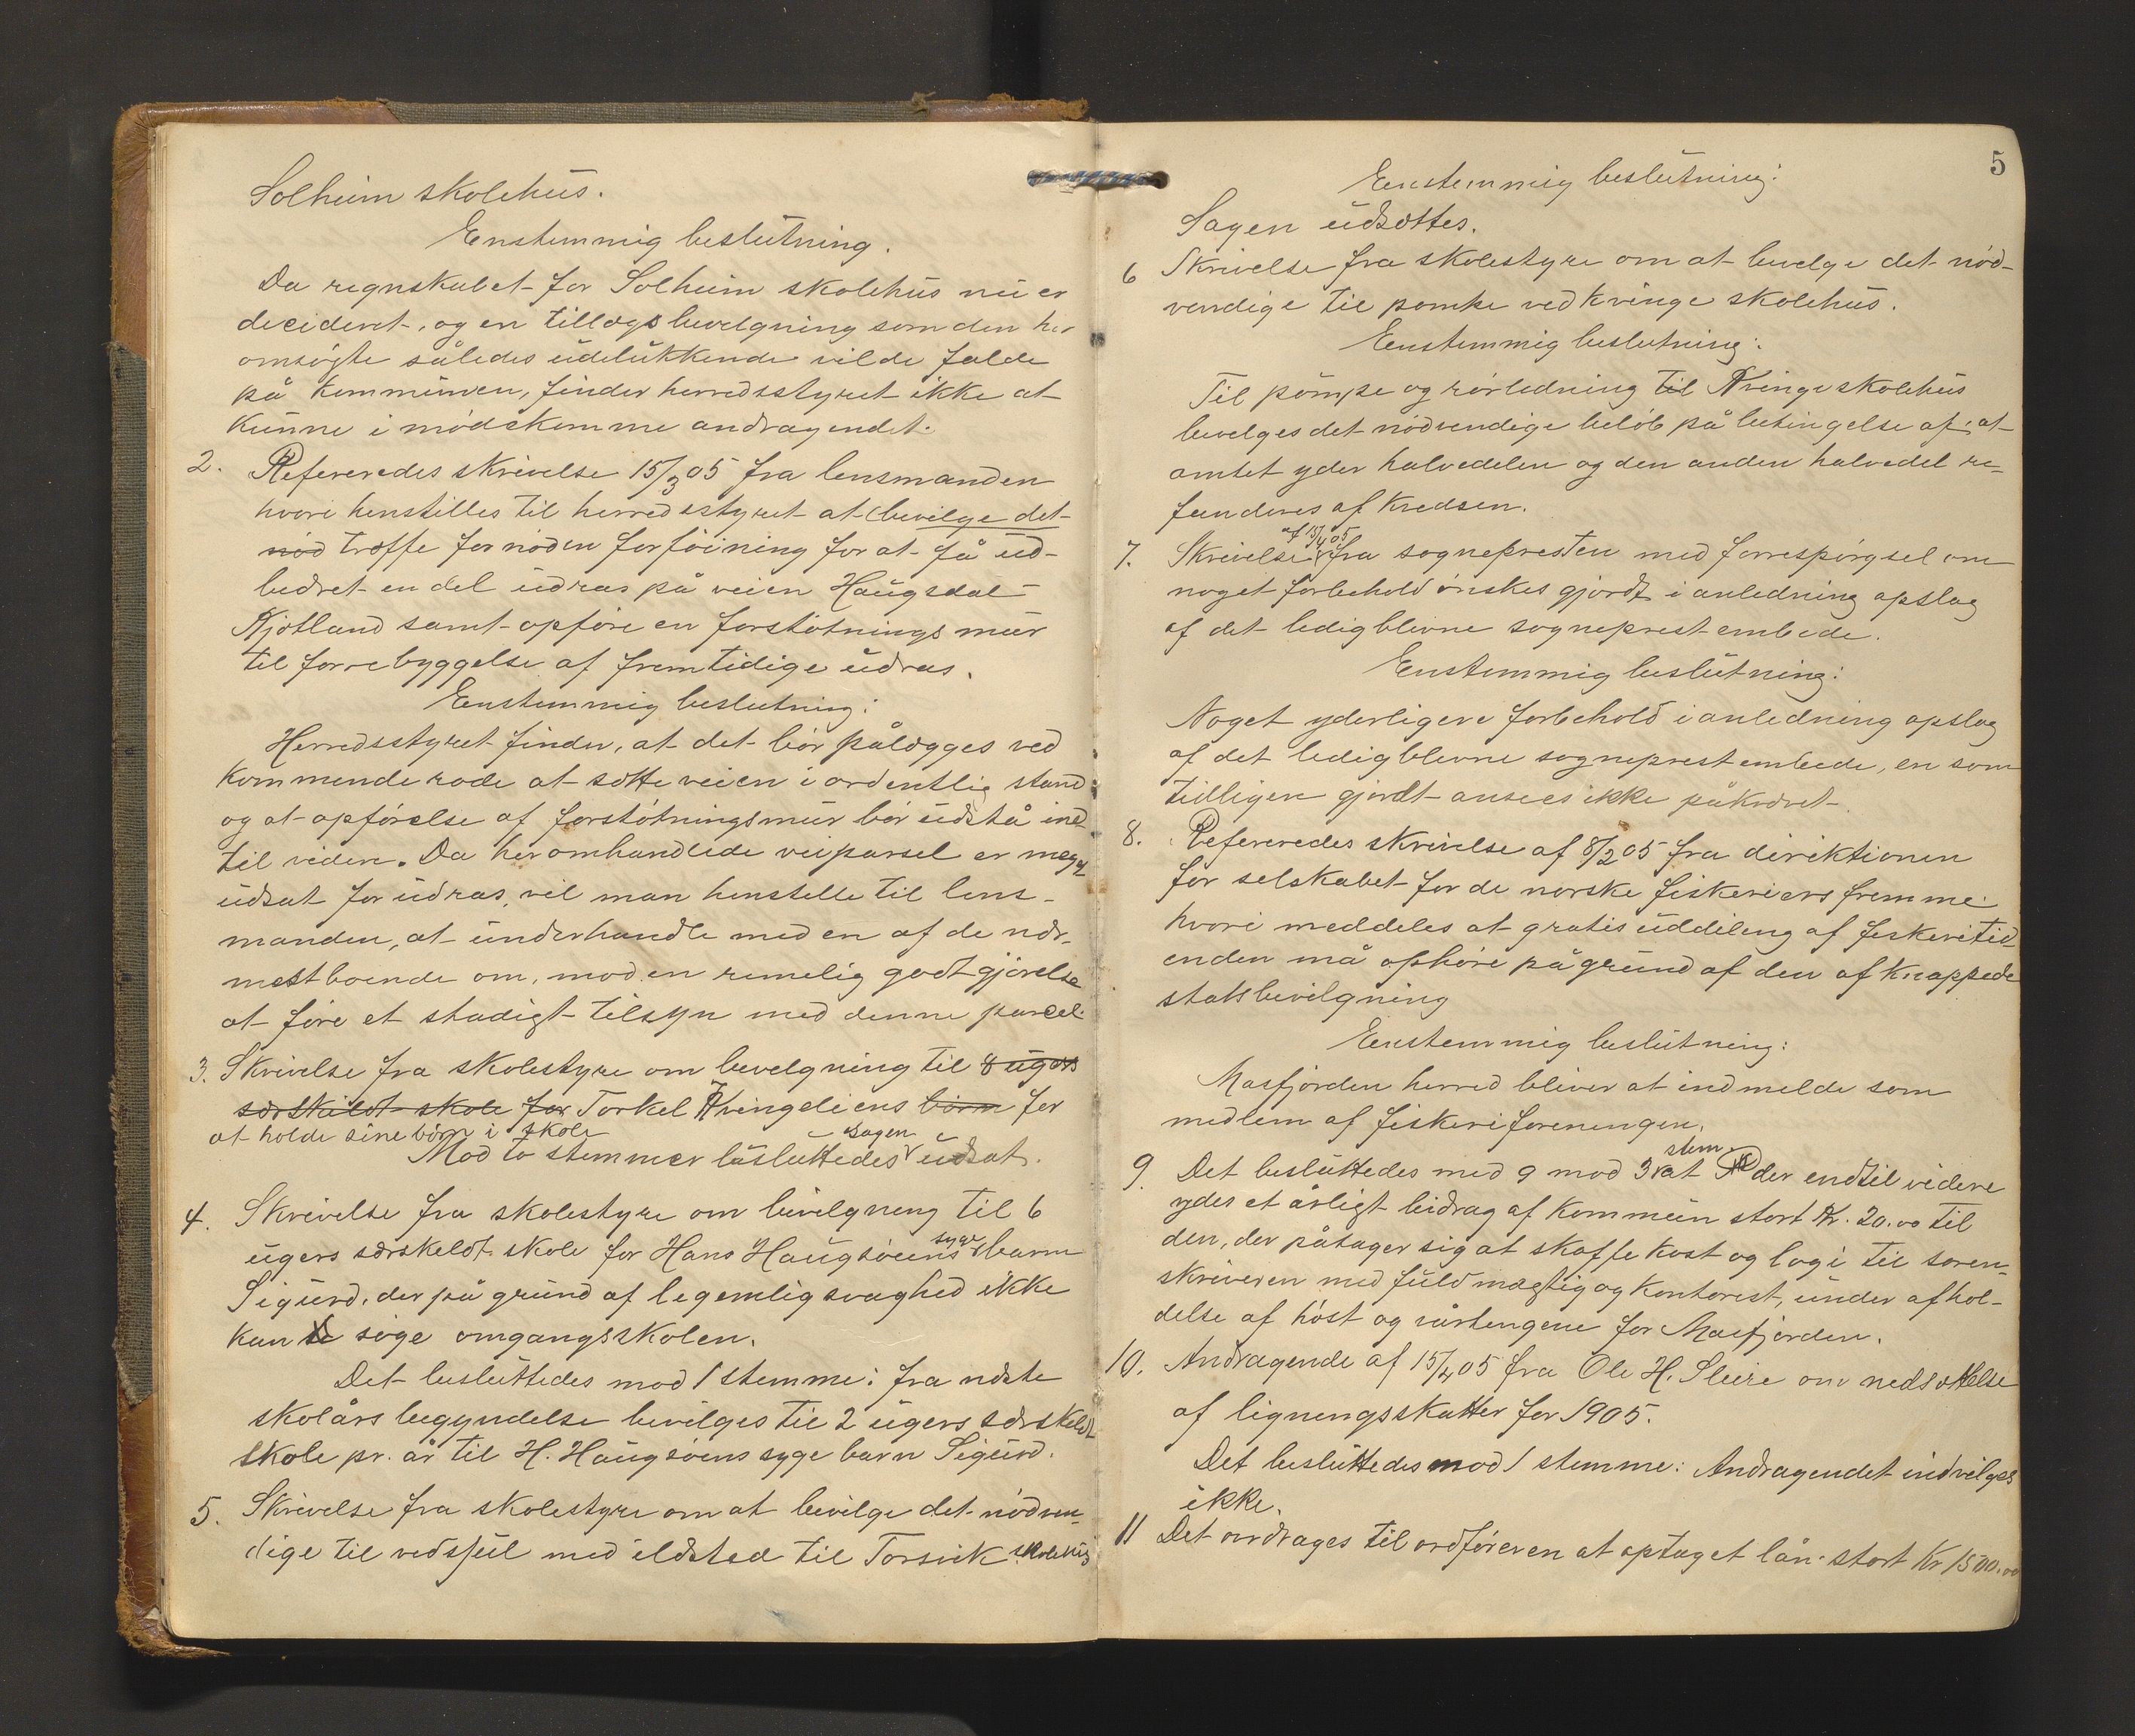 Solheim skolehus.
Enstemmig beslutning.
Da regnskabet for Solheim skolehus nu er
decideret, og en tillægsbevelgning som den her
omsøgte således udelukkende vilde falde
på kommunen, finder herredsstyret ikke at
kunne i mødekomme andragendet.
2. Refereredes skrivelse 15/3 05 fra lensmanden
hvori henstilles til herredsstyret at bevilge det
nød træffe fornøden forføining for at få ud-
bedret en del udras på veien Haugsdal-
Kjøtland samt opføre en forstøtningsmur
til forrebyggelse af fremtidige udras.
Enstemmig beslutning:
Herredsstyret finder, at det bør pålægges ved
kommende rode at sætte veien i ordentlig stand
og at opførelse af forstøtningsmur bør udstå ind-
til viden. Da her omhandlede veiparsel er meget
udsat for udras, vil man henstille til lens-
manden, at underhandle med en af de nær-
mest boende om, mod en rimelig godtgjørelse
at føre et stadigt tilsyn med denne parcel.
3. Skrivelse fra skolestyre om bevelgning til 8 ugers
særskildt skole for Torkel Kvingeliens børn for
at holde sine børn i skole
Mod to stemmer besluttedes sagen udsat.
4. Skrivelse fra skolestyre om bevilgning til 6
ugers særskeldt skole for Hans Haugsøens syge barn
Sigurd, der på grund af legemlig svaghed ikke
kan søge omgangsskolen.
Det besluttedes mod 1 stemme: fra næste
skolårs begyndelse bevilges til 2 ugers særskeldt
skole pr. år til H. Haugsøens syge barn Sigurd.
5. Skrivelse fra skolestyre om at bevilge det nødven-
dige til vedskul med ildsted til Torsvik skolehus
5
Enstemmig beslutning:
Sagen udsættes.
6 Skrivelse fra skolestyre om at bevelge det nød-
vendige til pompe ved Kvinge skolehus.
Enstemmig beslutning:
Til pompe og rørledning til Kvinge skolehus
bevelges det nødvendige beløb på betingelse af, at
amtet yder halvedelen og den anden halvedel re-
funderes af kredsen.
7. Skrivelse af 15/4 05 fra sognepresten med forrespørgsel om
noget forbehold ønskes gjordt i anledning opslag
af det ledigblevne sogneprestembede.
Enstemmig beslutning:
Noget yderligere forbehold i anledning opslag
af det ledigblevne sogneprestembede, en som
tidligere gjordt ansees ikke påkrævet.
8. Refereredes skrivelse af 8/2 05 fra direktionen
for selskabet for de norske fiskeriers fremme
hvori meddeles at gratis uddeling af feskeritid-
enden må ophøre på grund af den afknappede
statsbevilgning
Enstemmig beslutning:
Masfjorden herred bliver at indmelde som
medlem af fiskeriforeningen.
9. Det besluttedes med 9 mod 3 stem at der endtil videre
ydes et årligt bidrag af kommun stort Kr. 20.00 til
den, der påtager sig at skaffe kost og logi til soren-
skriveren med fuldmægtig og kontorist, under afhol-
delse af høst og vårtengene for Masfjorden.
10. Andragende af 15/4 05 fra Ole H. Sleire om nedsættelse
af ligningsskatter for 1905.
Det besluttedes mod 1 stemme: Andragendet indvilges
ikke.
11 Det overdrages til ordføreren at optaget lån stort Kr 1500.00